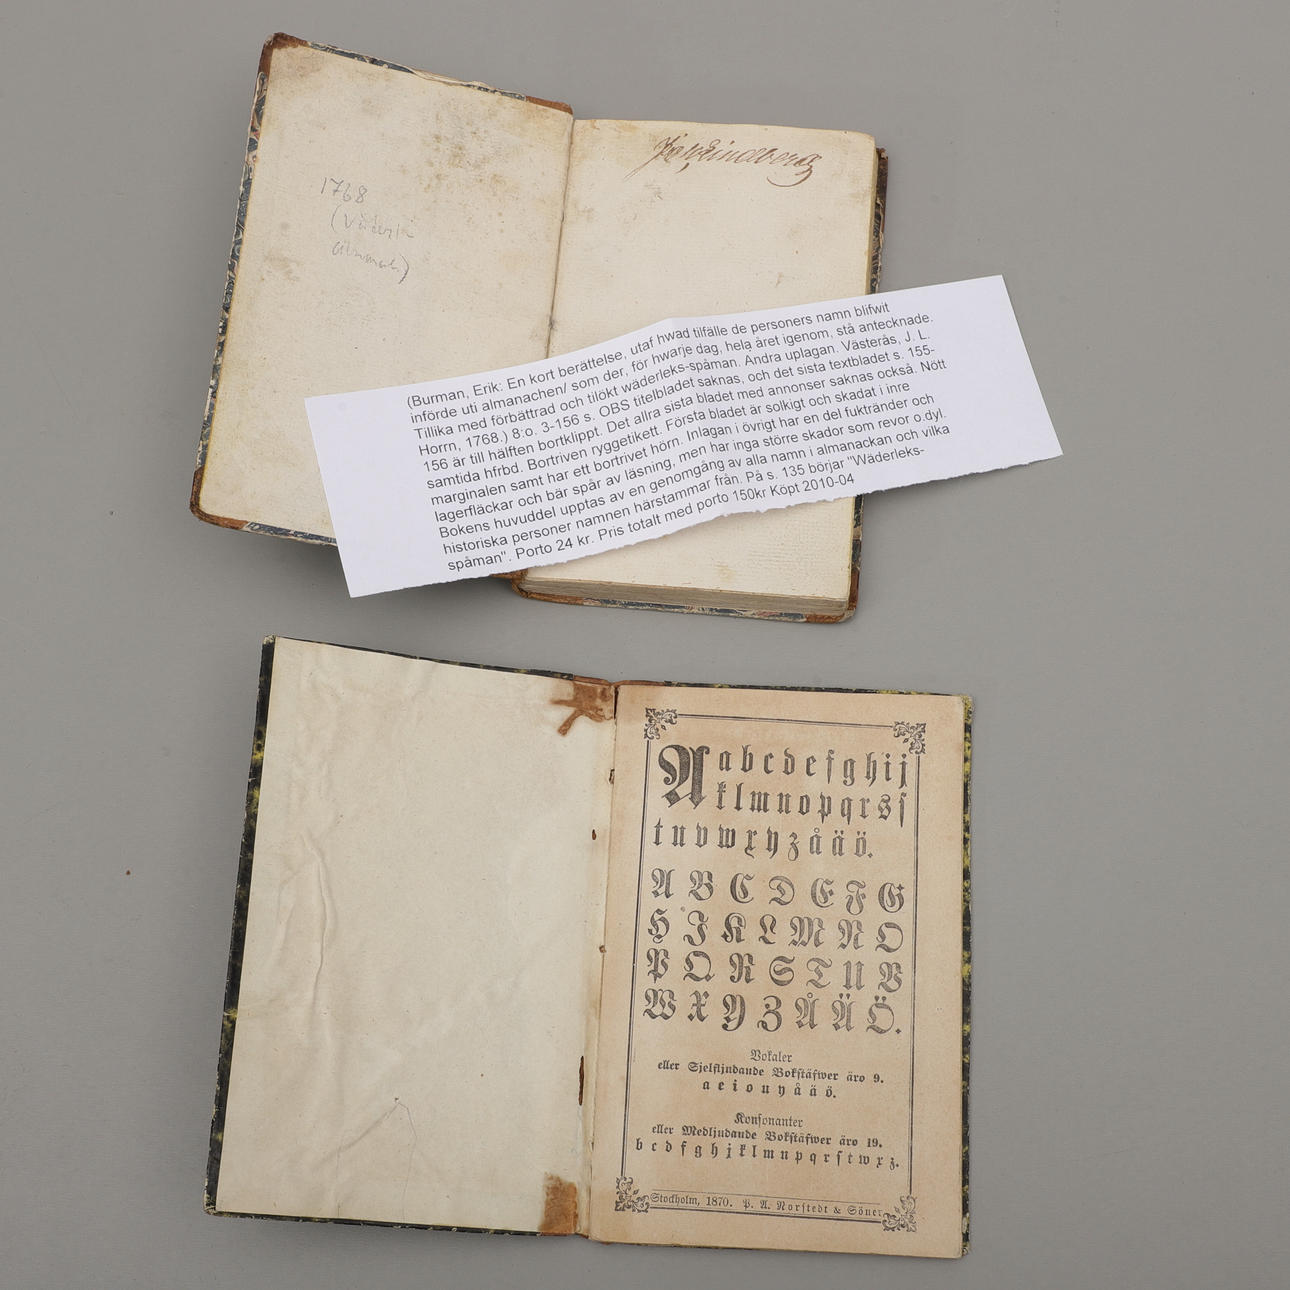 1768
(Väderle
almanach)
Lindberg
(Burman, Erik: En kort berättelse, utaf hwad tilfälle de personers namn blifwit
införde uti almanachen/ som der, för hwarje dag, hela året igenom, stå antecknade.
Tillika med förbättrad och tilökt wäderleks-spåman. Andra uplagan. Västerås, J. L.
Horrn, 1768.) 8:o. 3-156 s. OBS titelbladet saknas, och det sista textbladet s. 155-
156 är till hälften bortklippt. Det allra sista bladet med annonser saknas också. Nött
samtida hfrbd. Bortriven ryggetikett. Första bladet är solkigt och skadat i inre
marginalen samt har ett bortrivet hörn. Inlagan i övrigt har en del fuktränder och
lagerfläckar och bär spår av läsning, men har inga större skador som revor o.dyl.
Bokens huvuddel upptas av en genomgång av alla namn i almanackan och vilka
historiska personer namnen härstammar från. På s. 135 börjar "Wäderleks-
spåman". Porto 24 kr. Pris totalt med porto 150kr Köpt 2010-04
A a b c d e f g h i j
k l m n o p q r s ſ
t u v w x y z å ä ö.
A B C D E F G
H J K L M N O
P Q R S T U V
W X Y Z Å Ä Ö.
Vokaler
eller Sjelfljudande Bokſtäfwer äro 9.
a e i o u y å ä ö.
Konſonanter
eller Medljudande Bokſtäfwer äro 19.
b c d f g h j k l m n p q r ſ t w x z.
Stockholm, 1870. P. A. Norſtedt & Söner